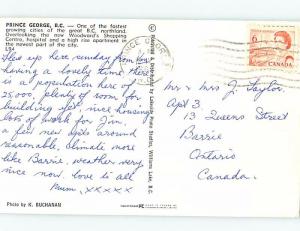 PRINCE GEORGE, B.C. — One of the fastest
growing cities of the great B.C. northland.
Overlooking the new Woodward's Shopping
Centre, hospital and a high rise apartment in
the newest part of the city.
Flew up here Sunday from Van
having a lovely time there
is a population here of
25,000 plenty of room for
building yet nice housing
lots of work for Jim.
a few new apts around
reasonable, climate more
like Barrie, weather very
nice now. love to all
xxxxx
Photo by K. BUCHANAN
PRINCE GEORGE
6
CANADA
Mr & Mrs J. Taylor
Apt 3
13 Queens Street
Barrie
Ontario
Canada.